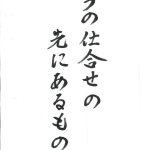 の仕合せの
先にあるもの